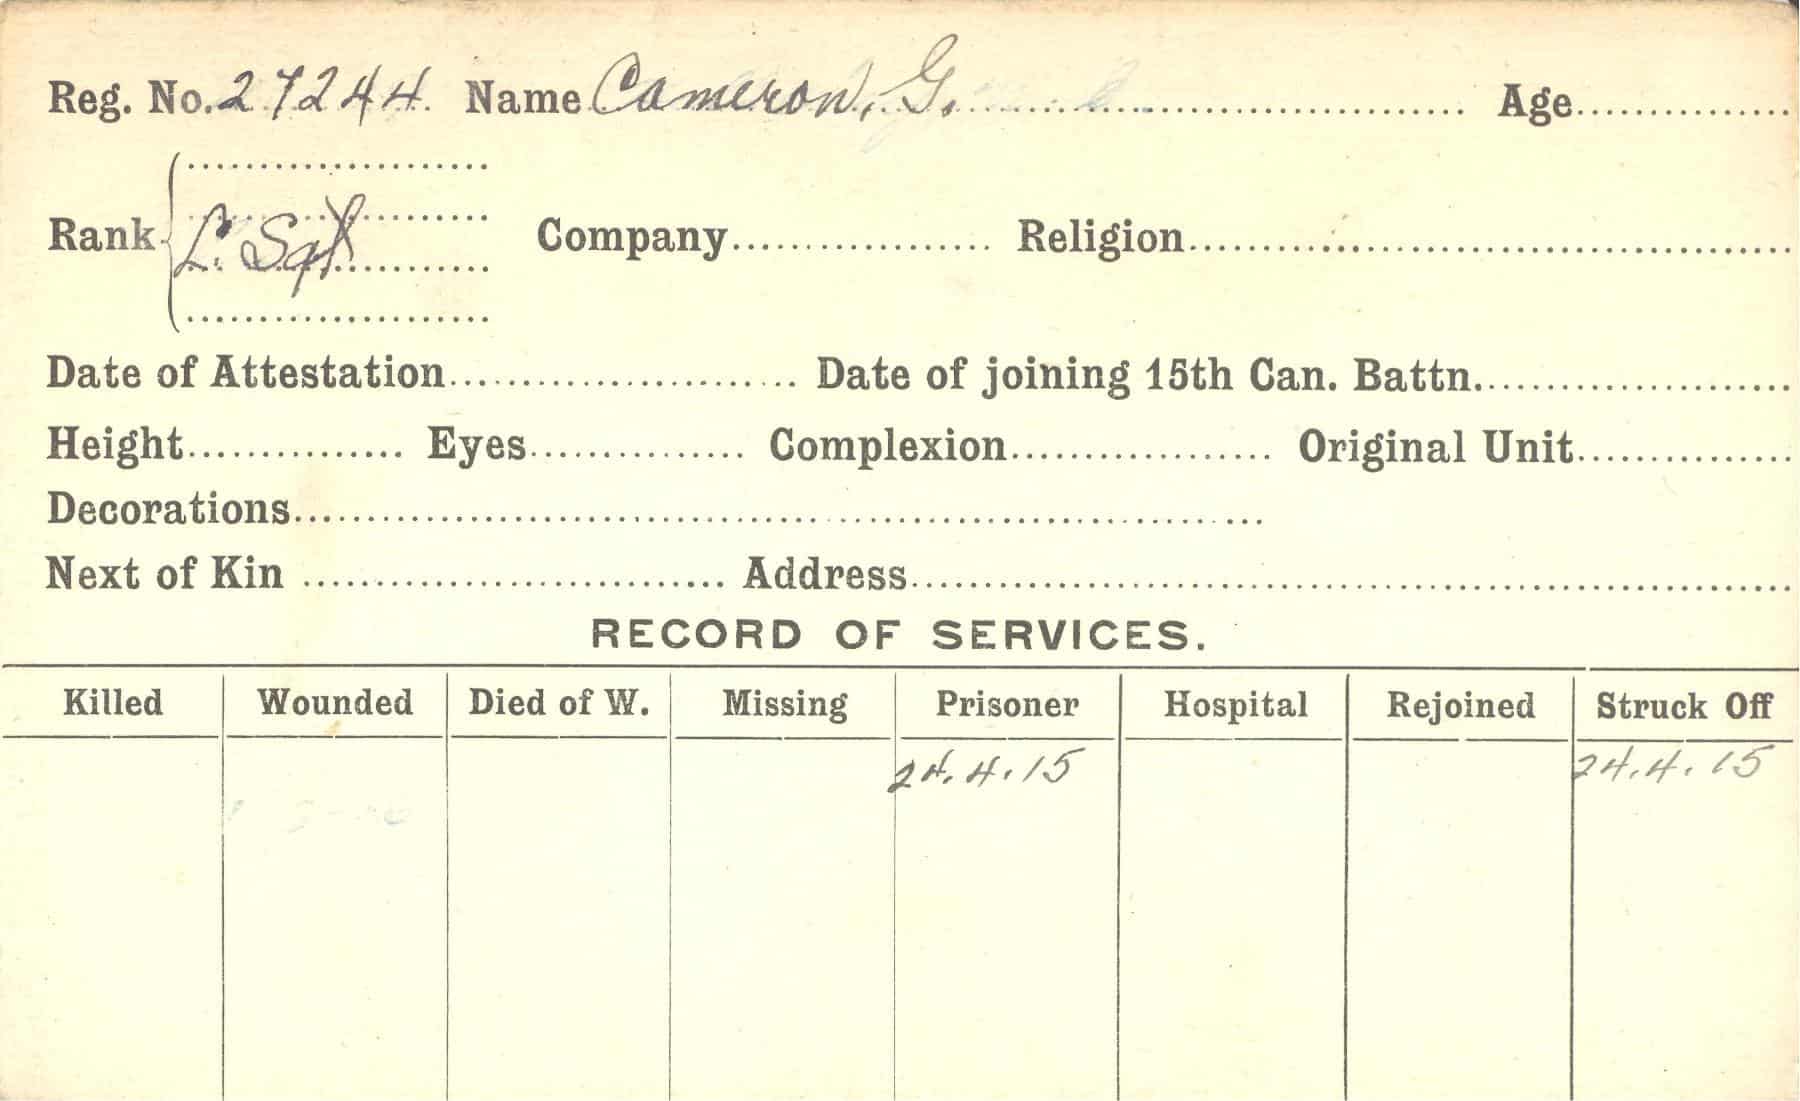 Reg. No. 27244. Name Cameron, G. Age
Rank L. Sgt Company Religion
Date of Attestation Date of joining 15th Can. Battn.
Height Eyes Complexion Original Unit
Decorations
Next of Kin Address
RECORD OF SERVICES.
Killed Wounded Died of W. Missing Prisoner Hospital Rejoined Struck Off
24.4.15 24.4.15